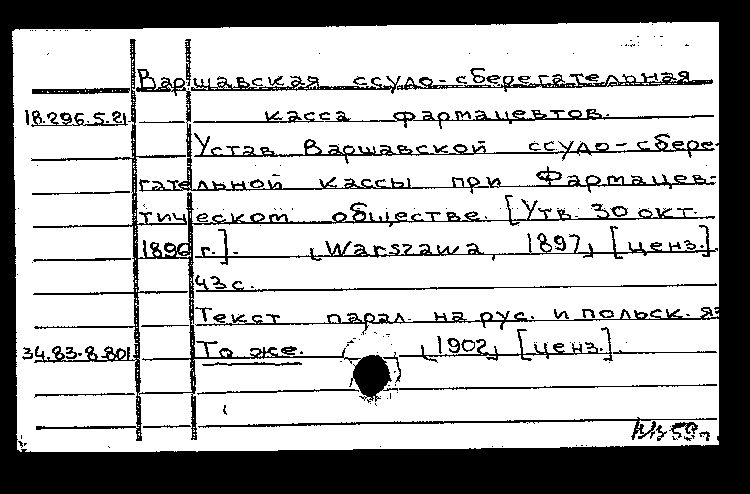 Варшавская ссудо-сберегательная
18.296.5.21 касса фармацевтов.
Устав Варшавской ссудо-сбере-
гательной кассы при Фармацев-
тическом обществе. [Утв. 30 окт.
1896 г.]. ⌊Warszawa, 1897⌋ [ценз.].
43 с.
Текст парал. на рус. и польск. яз
34.83.8.801 То же. ⌊1902⌋ [ценз.].